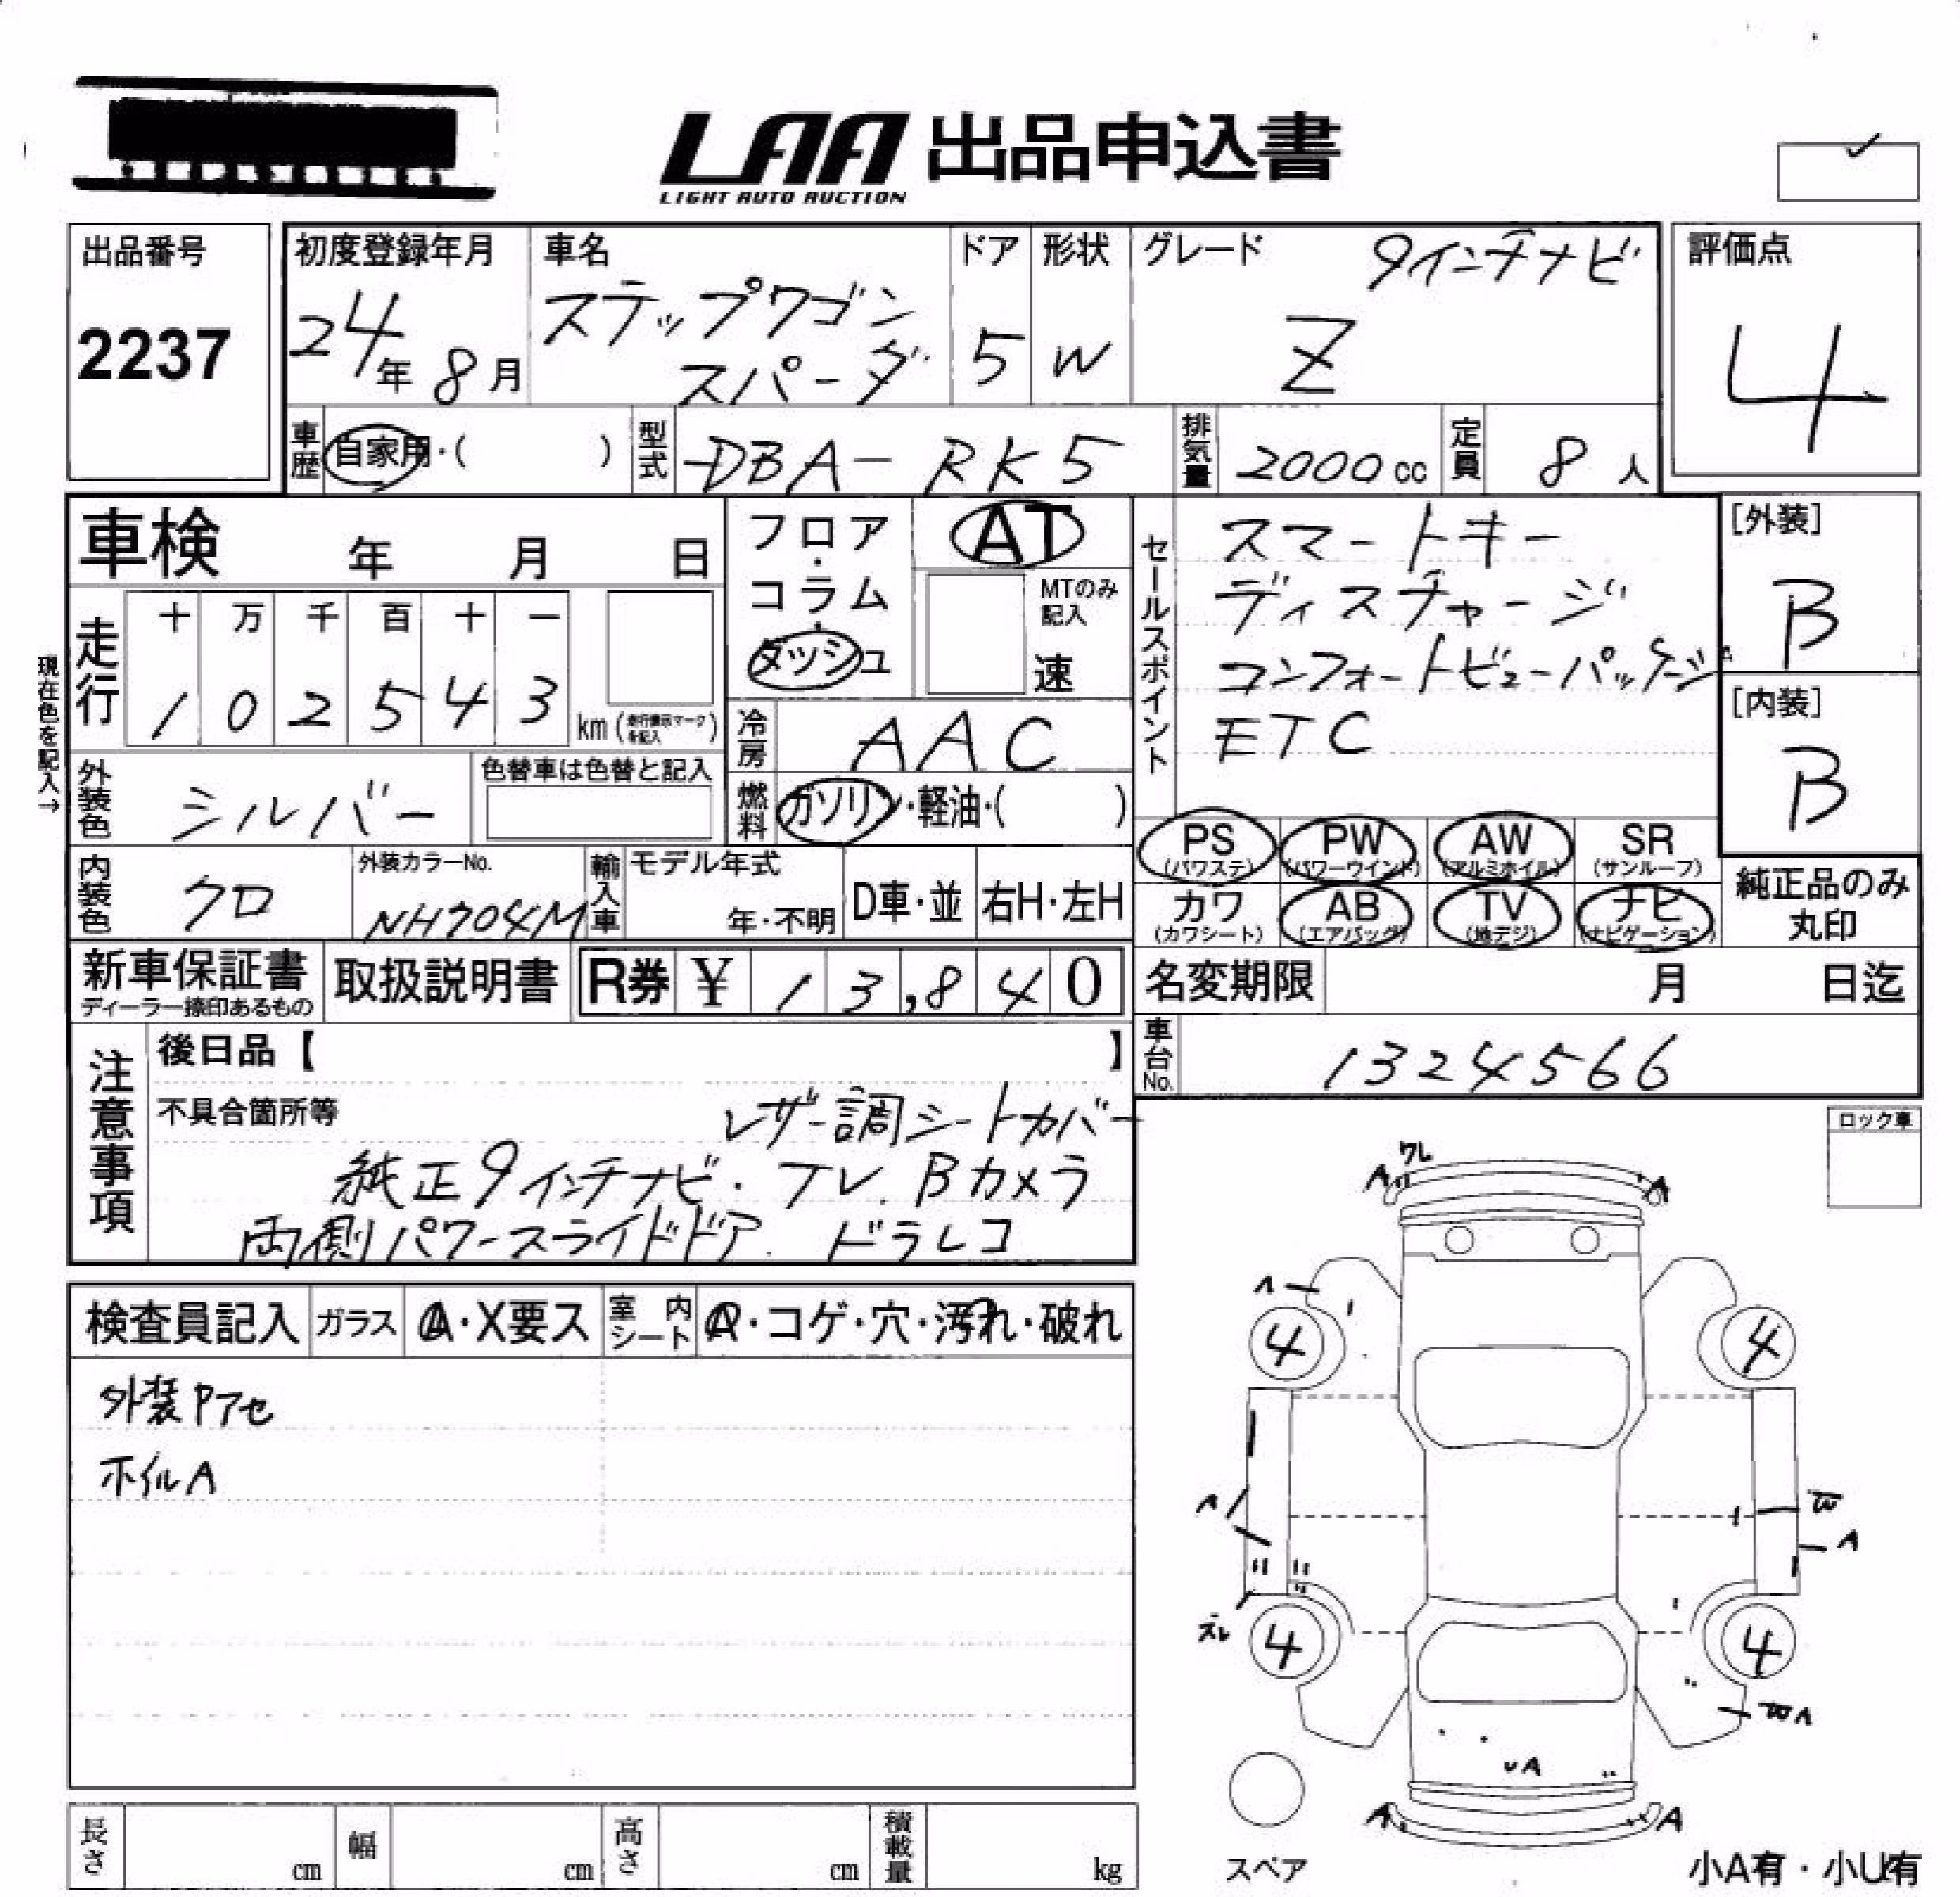 LAA 出品申込書
LIGHT AUTO AUCTION
出品番号
2237
初度登録年月
24年 8月
車名
ステップワゴン
スパーダ
ドア
5
形状
W
グレード
9インチナビ
Z
評価点
4
車歴
自家用・( )
型式
DBA-RK5
排気量
2000cc
定員
8人
車検 年 月 日
フロア・コラム・ダッシュ
AT
MTのみ記入
速
現在色を記入→
走行
十 万 千 百 十 一
1 0 2 5 4 3 km
冷房
AAC
燃料
ガソリン・軽油・( )
外装色
シルバー
色替車は色替と記入
内装色
クロ
外装カラーNo.
NH704M
輸入車
モデル年式
年・不明
D車・並
右H・左H
セールスポイント
スマートキー
ディスチャージ
コンフォートビューパッケージ
ETC
[外装]
B
[内装]
B
PS PW AW SR
(パワステ) (パワーウインド) (アルミホイル) (サンルーフ)
カワ AB TV ナビ
(カワシート) (エアバッグ) (地デジ) (ナビゲーション)
純正品のみ
丸印
新車保証書
ディーラー捺印あるもの
取扱説明書
R券 ¥ 13,840
名変期限 月 日迄
車台No.
1324566
注意事項
後日品【 】
不具合箇所等
レザー調シートカバー
純正9インチナビ. TV. Bカメラ
両側パワースライドドア. ドラレコ
ロック車
検査員記入
ガラス
A・X要ス
室内シート
A・コゲ・穴・汚れ・破れ
外装Pアセ
ホイルA
A ワレ A
A
4 4
A W
A
スレ
4 4
WA
A
A A
スペア
小A有・小U有
長さ cm
幅 cm
高さ cm
積載量 kg